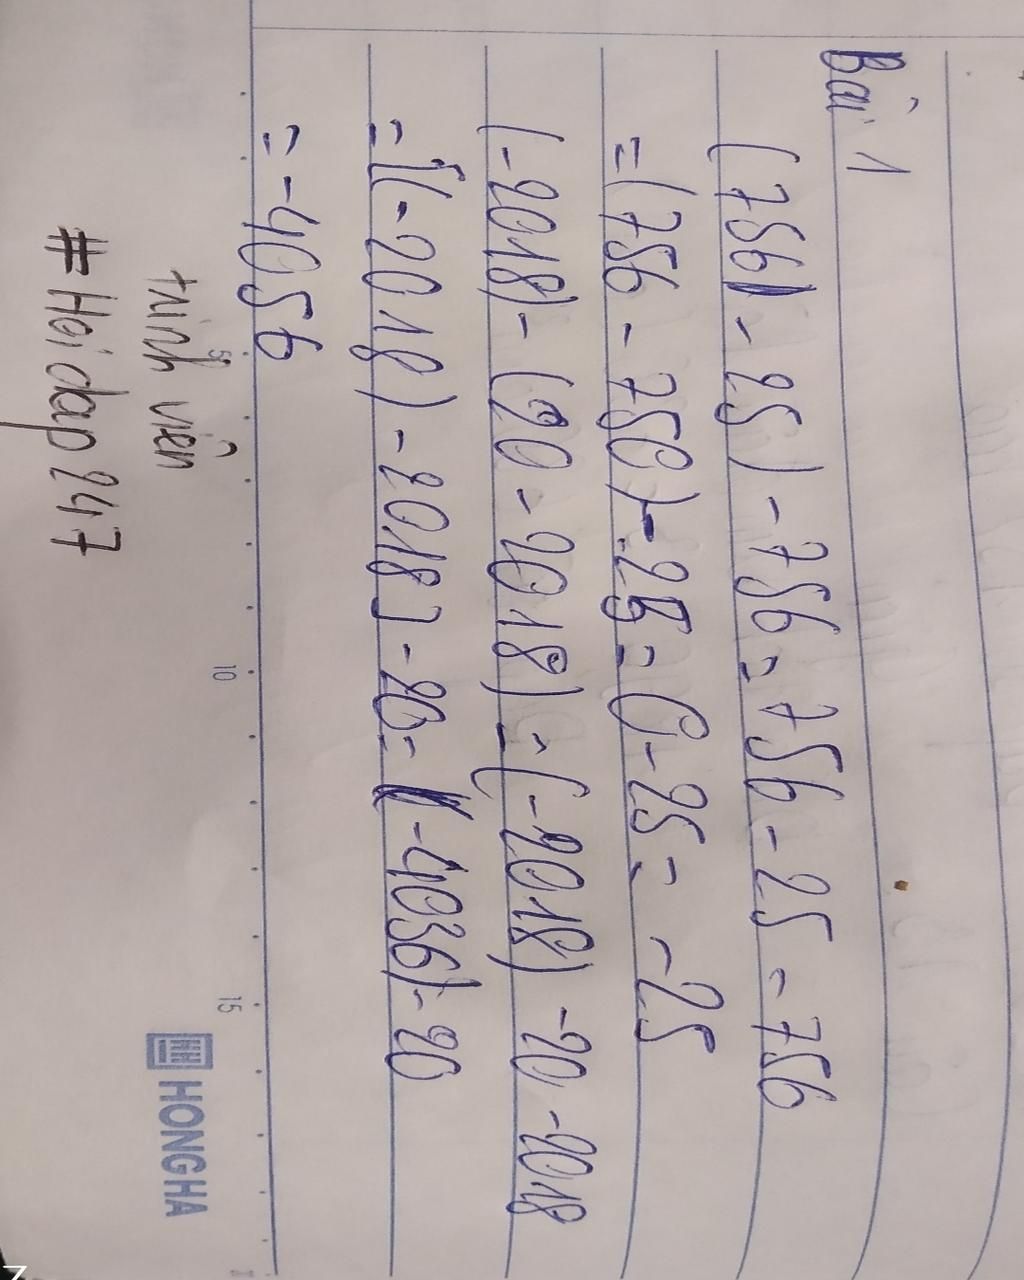 Bài 1
(756 - 25) - 756 = 756 - 25 - 756
= (756 - 756) - 25 = 0 - 25 = -25
(-2018) - (20 - 2018) = (-2018) - 20 - 2018
= [(-2018) - 2018] - 20 = (-4036) - 20
= -4056
trình viên
#Hoidap247
5
10
15
HONGHA